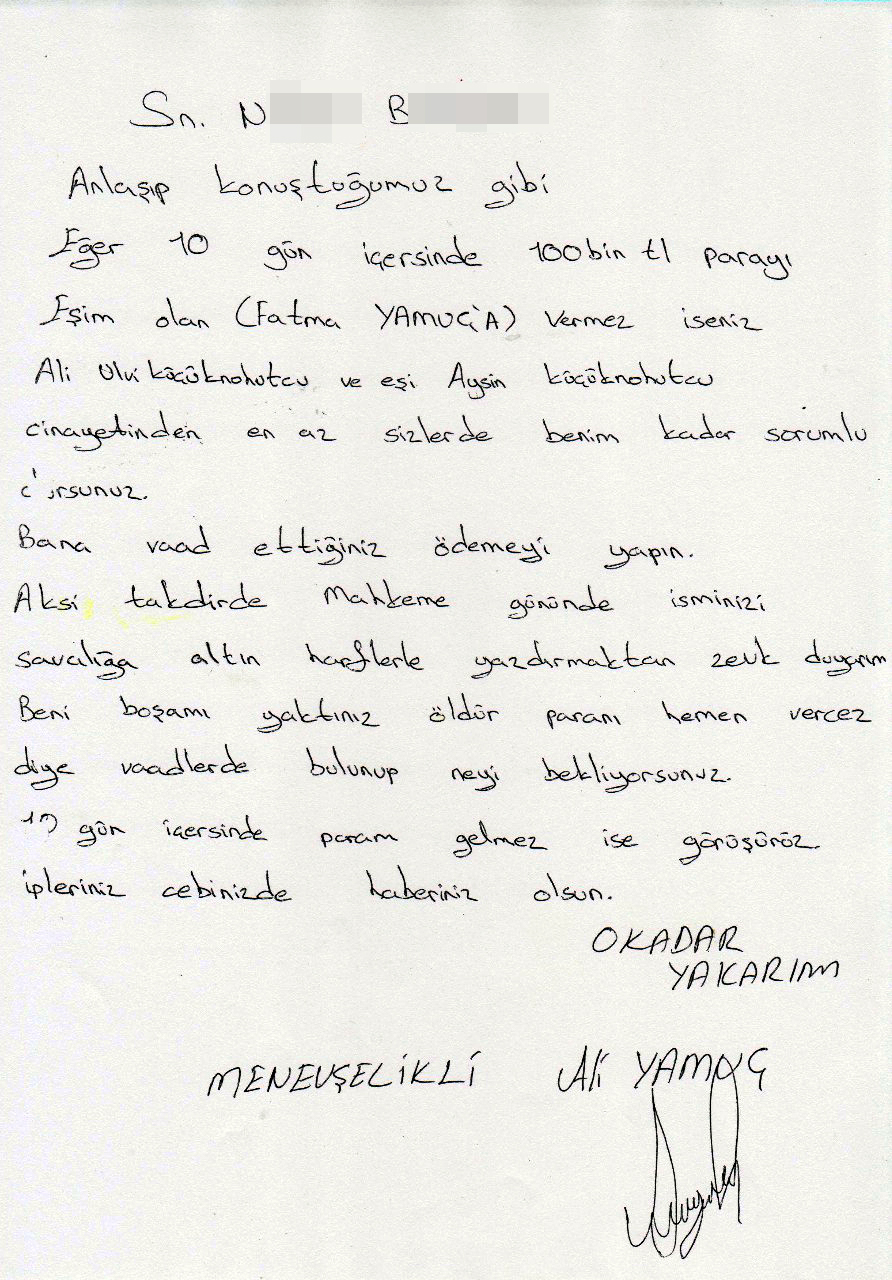 Sn. N B
Anlaşıp konuştuğumuz gibi
Eğer 10 gün içersinde 100 bin tl parayı
Eşim olan (Fatma YAMUÇ'A) Vermez iseniz
Ali Ulvi küçüknohutcu ve eşi Aysin küçüknohutcu
cinayetinden en az sizlerde benim kadar sorumlu
Bana vaad ettiğiniz ödemeyi yapın.
Aksi takdirde Mahkeme gününde isminizi
savcılığa altın harflerle yazdırmaktan zevk duyarım
Beni boşamı yaktınız öldür paranı hemen vercez
diye vaadlerde bulunup neyi bekliyorsunuz.
gün içersinde param gelmez ise görüşürüz.
ipleriniz cebinizde haberiniz olsun.
OKADAR
YAKARIM
MENEVŞELİKLİ Ali YAMUÇ